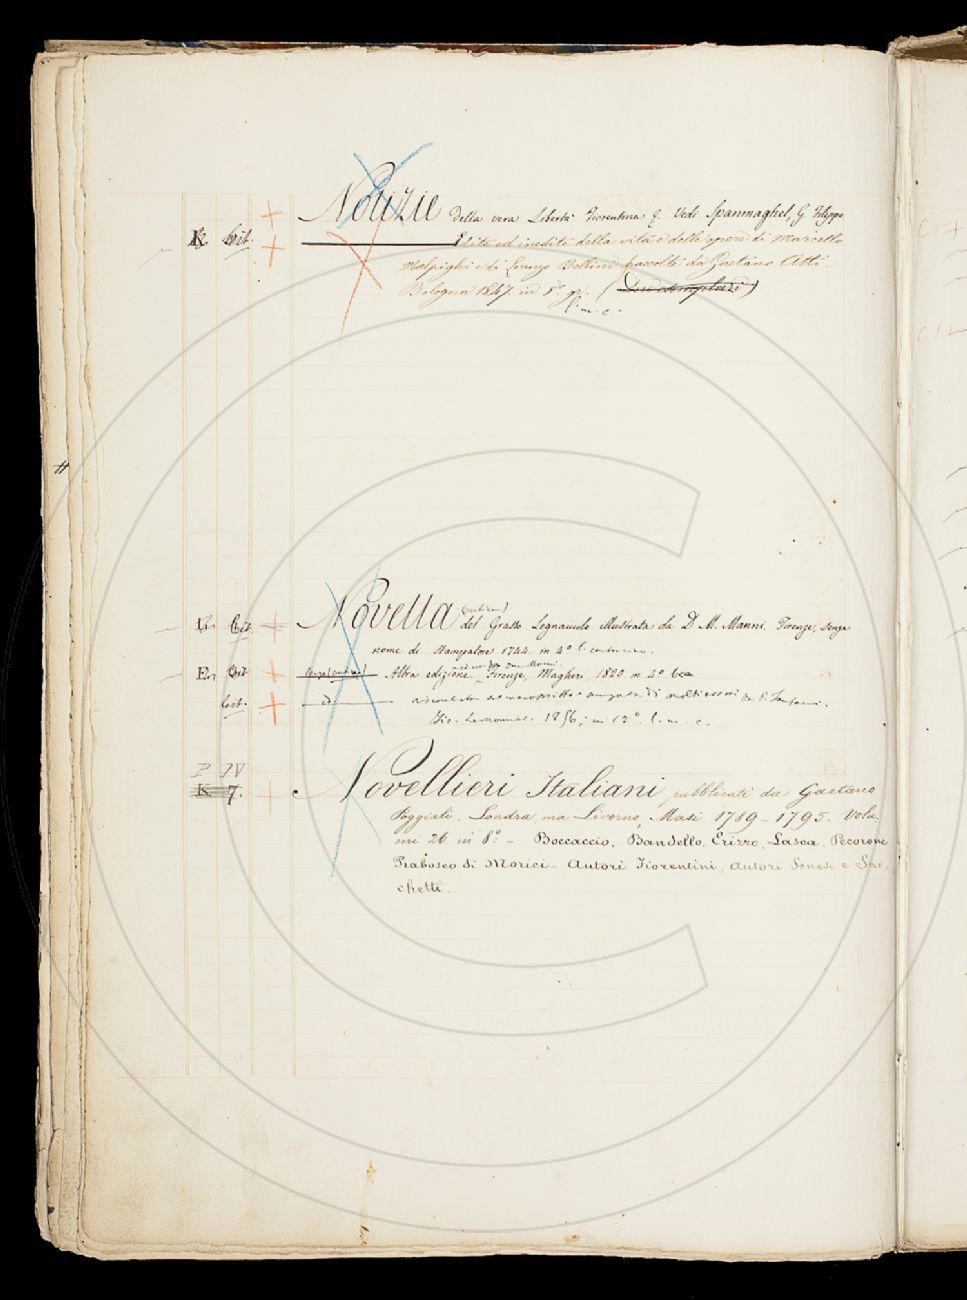 Notizie della vera Libertà Fiorentina &. Vedi Spannaghel, G. Filippo
K Cit. Edite ed inedite della vita e delle opere di Marcello
Malpighi e di Lorenzo Bellini raccolte da Gaetano Atti.
Bologna 1847. in 8.° gr. (Due esemplari)
l. m. c.
#
Cit. Novella (antica) del Grasso Legnaiuolo illustrata da D. M. Manni. Firenze, senza
nome di Stampatore 1744. in 4.°
E Cit Altra edizione Firenze, Magheri, 1820 in 4.°
Cit. id riscontrata purgata di molti errori da P. Fanfani.
Fir. Lemonnier. 1856; in 12.° l. m. c.
P IV
K 7. Novellieri Italiani pubblicati da Gaetano
Poggiali. Londra, ma Livorno, Masi 1789-1795. Volu
mi 26 in 8.° - Boccaccio, Bandello, Erizzo, Lasca, Pecorone
Parabosco di Morici - Autori Fiorentini, Autori Senesi e Sac-
chetti.